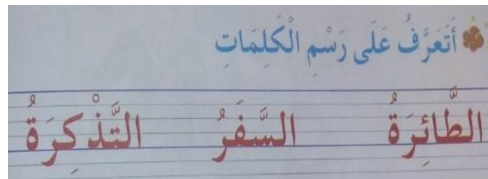 أَتَعَرَّفُ عَلَى رَسْمِ الْكَلِمَاتِ
الطَّائِرَةُ السَّفَرُ التَّذْكِرَةُ